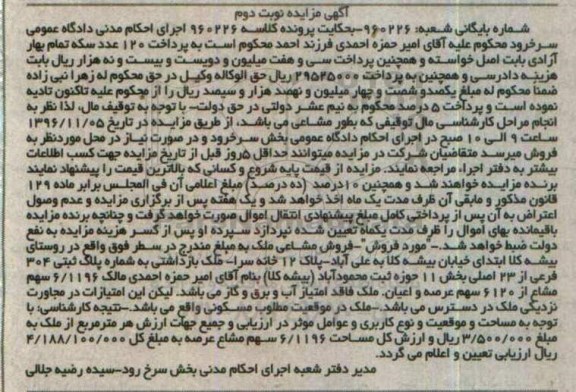 آگهی مزایده نوبت دوم
شماره بایگانی شعبه: ۹۶۰۲۲۶-بحکایت پرونده کلاسه ۹۶۰۲۲۶ اجرای احکام مدنی دادگاه عمومی
سرخرود محکوم علیه آقای امیر حمزه احمدی فرزند احمد محکوم است به پرداخت ۱۲۰ عدد سکه تمام بهار
آزادی بابت اصل خواسته و همچنین پرداخت سی و هفت میلیون و دویست و بیست و نه هزار ریال بابت
هزینه دادرسی و همچنین به پرداخت ۲۹۵۲۵۰۰۰ ریال حق الوکاله وکیل در حق محکوم له زهرا نبی زاده
ضمنا محکوم له مبلغ یکصدو شصت و چهار میلیون و نهصد هزار و سیصد ریال را از محکوم علیه تاکنون تادیه
نموده است و پرداخت ۵ درصد محکوم به نیم عشر دولتی در حق دولت- با توجه به توقیف مال، لذا نظر به
انجام مراحل کارشناسی مال توقیفی که بطور مشاعی می باشد، از طریق مزایده در تاریخ ۱۳۹۶/۱۱/۰۵
ساعت ۹ الی ۱۰ صبح در اجرای احکام دادگاه عمومی بخش سرخرود و در صورت نیاز در محل موردنظر به
فروش میرسد متقاضیان شرکت در مزایده میتوانند حداقل ۵روز قبل از تاریخ مزایده جهت کسب اطلاعات
بیشتر به دفتر اجرا، مراجعه نمایند. مزایده از قیمت پایه شروع و کسانی که بالاترین قیمت را پیشنهاد نمایند
برنده مزایده خواهند شد و همچنین ۱۰درصد (ده درصد) مبلغ اعلامی آن فی المجلس برابر ماده ۱۲۹
قانون مذکور و مابقی آن ظرف مدت یک ماه اخذ خواهد شد و یک هفته پس از برگزاری مزایده و عدم وصول
اعتراض به آن پس از پرداختی کامل مبلغ پیشنهادی انتقال اموال صورت خواهد گرفت و چنانچه برنده مزایده
باقیمانده بهای اموال را ظرف مدت یکماه تعیین شده نپردازد سپرده او پس از کسر هزینه مزایده به نفع
دولت ضبط خواهد شد.- مورد فروش"-فروش مشاعی ملک به مبلغ مندرج در سطر فوق واقع در روستای
بیشه کلا ابتدای خیابان بیشه کلا به علی آباد-پلاک ۱۲ خانه سرا- ملک بازداشتی به شماره پلاک ثبتی ۳۰۴
فرعی از ۲۳ اصلی بخش ۱۱ حوزه ثبت محمودآباد (بیشه کلا) بنام آقای امیر حمزه احمدی مالک ۶/۱۱۹۶ سهم
مشاع از ۶۱۲۰ سهم عرصه و اعیان. ملک فاقد امتیاز آب و برق و گاز می باشد. لیکن این امتیازات در مجاورت
نزدیکی ملک در دسترس می باشد.-ملک در موقعیت مطلوب مسکونی واقع می باشد.-نتیجه کارشناسی: با
توجه به مساحت و موقعیت و نوع کاربری و عوامل موثر در ارزیابی و جمیع جهات ارزش هر مترمربع از ملک به
مبلغ ۳/۵۰۰/۰۰۰ ریال و ارزش کل مساحت ۶/۱۱۹۶ سهم مشاع عرصه به مبلغ کل ۴/۱۸۸/۱۰۰/۰۰۰
ریال ارزیابی تعیین و اعلام می گردد.
مدیر دفتر شعبه اجرای احکام مدنی بخش سرخ رود-سیده رضیه جلالی